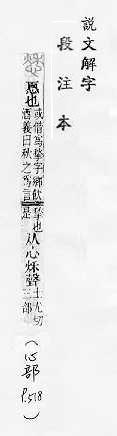 說文解字
段注本
𢝊也或借爲揫字鄉飲酒義曰秋之爲言揫也从心秌聲士尤切三部
(心部 P.518)